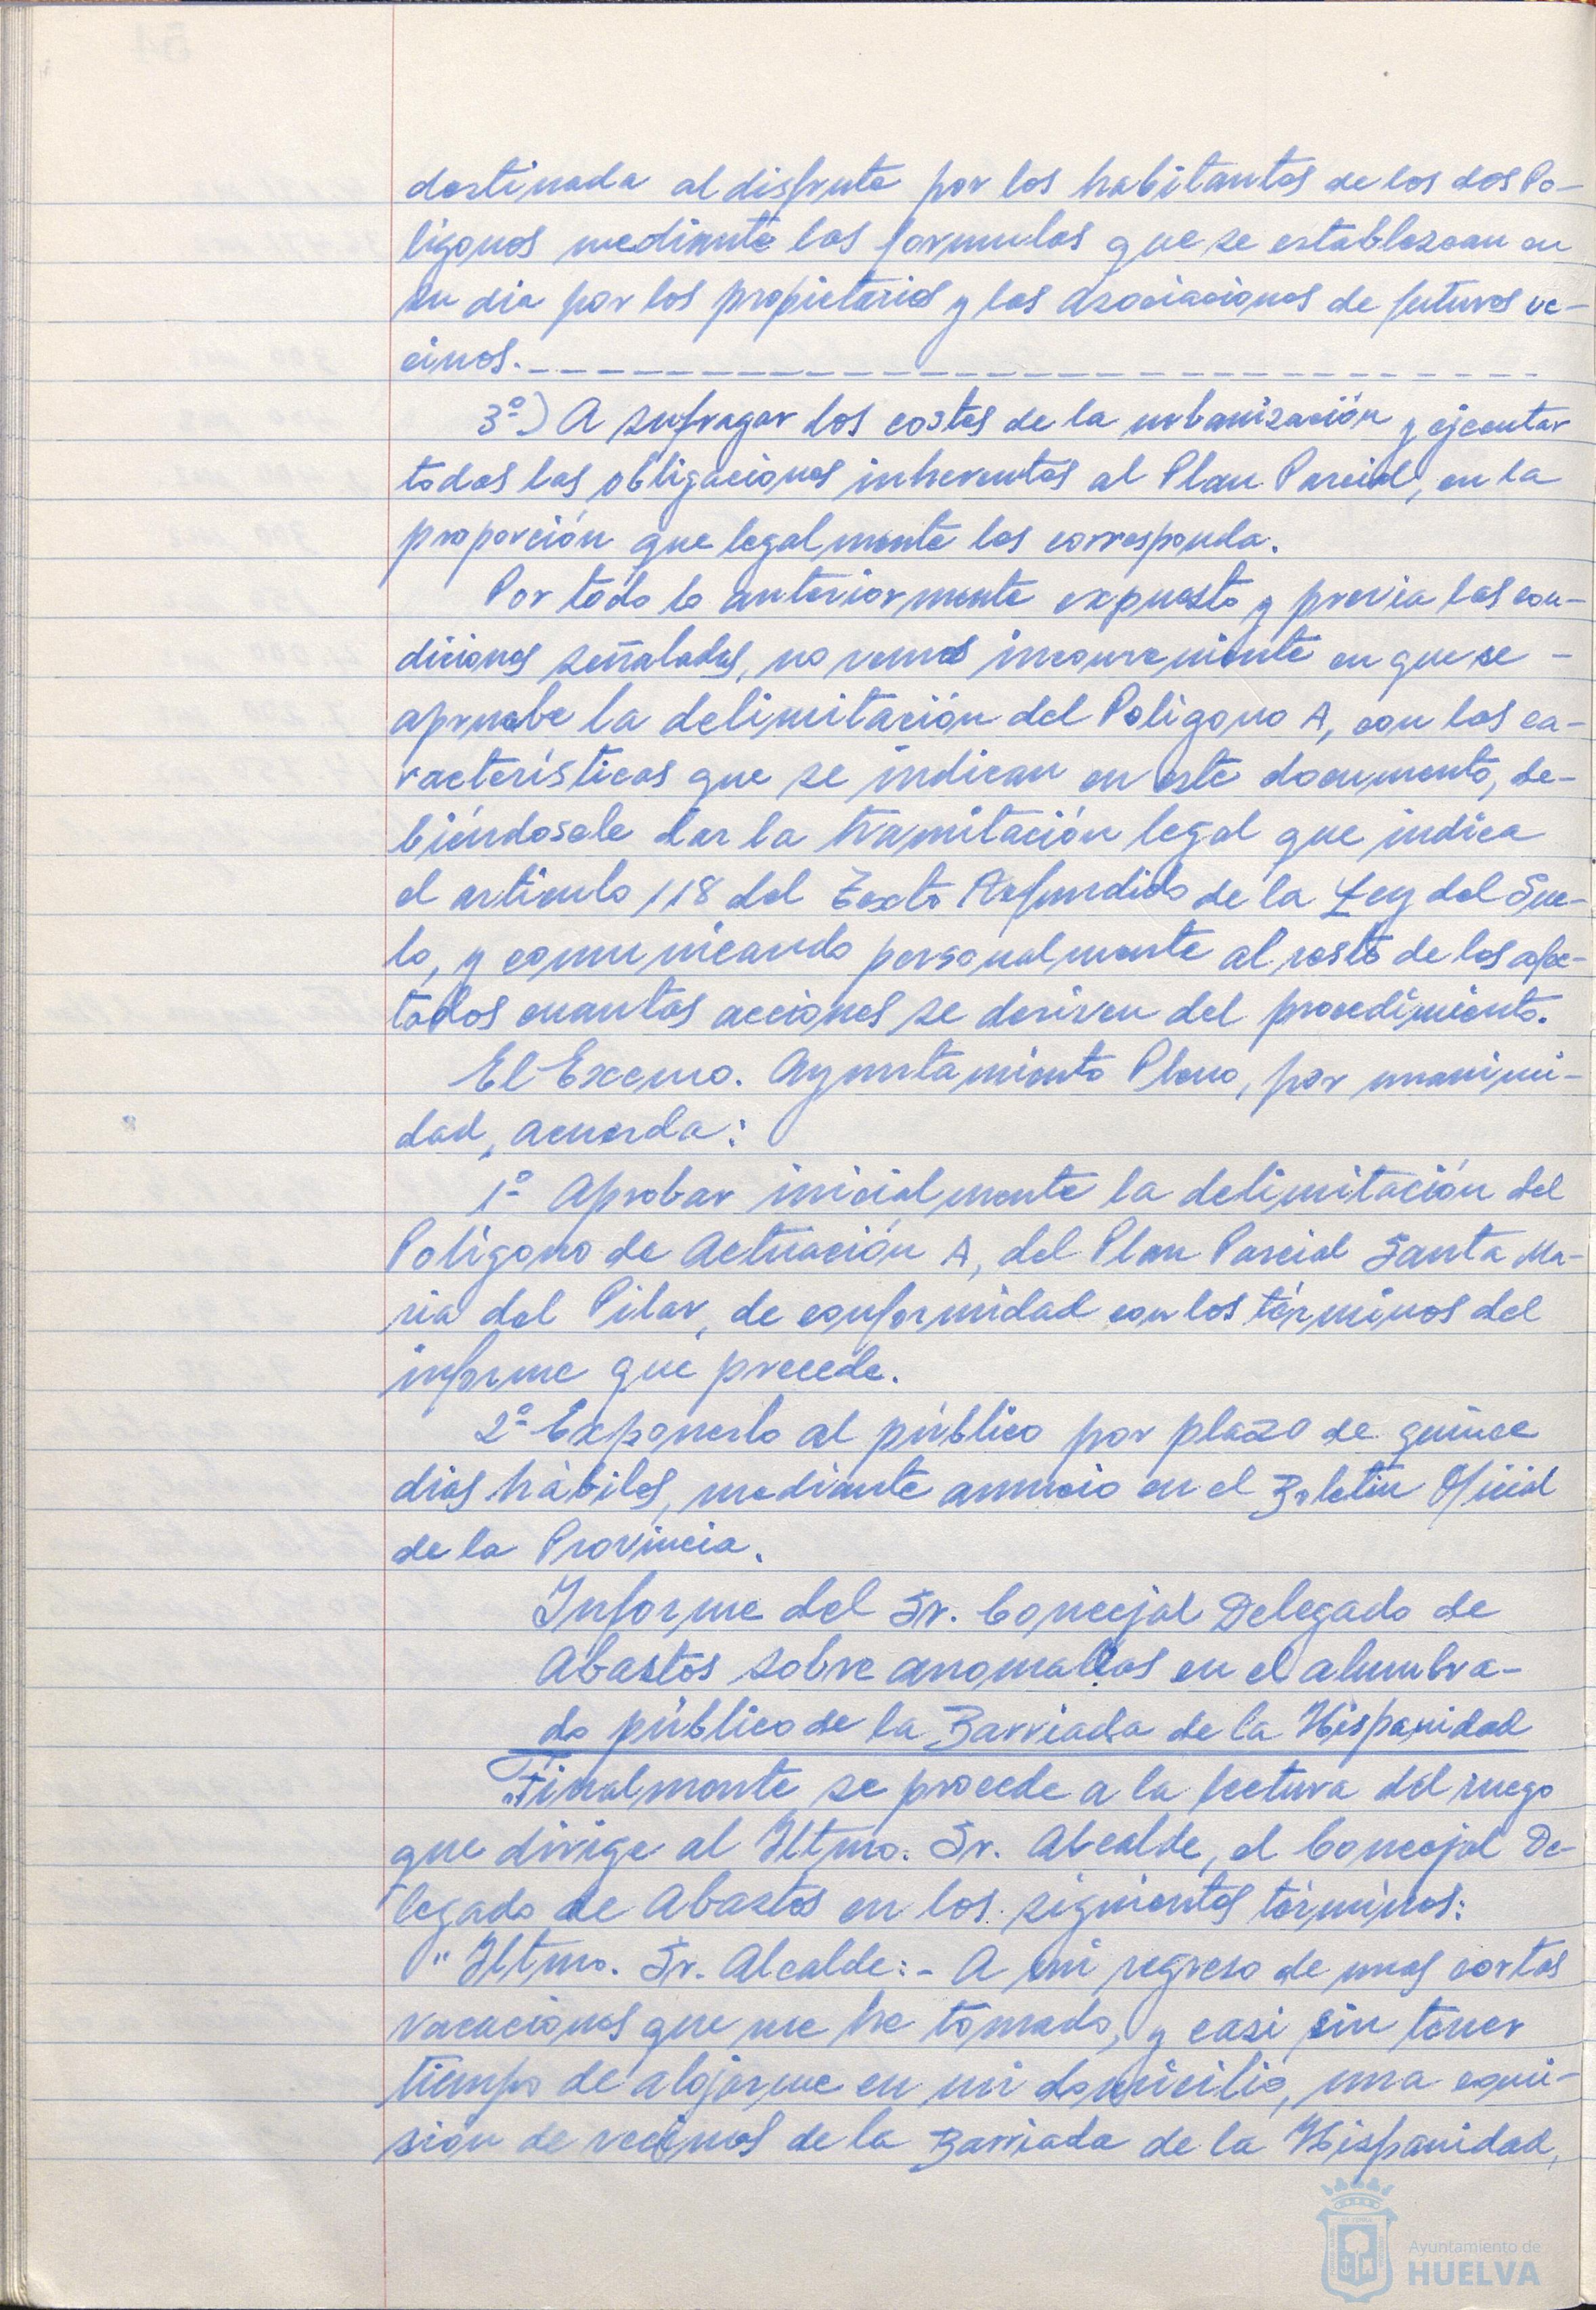 destinada al disfrute por los habitantes de los dos Po-
lígonos mediante las formulas que se establezcan en
su dia por los propietarios y las Asociaciones de futuros ve-
cinos.- - - - - - - - - - - - - - - - - - - - - - - - - - -
3º) A sufragar los costes de la urbanización y ejecutar
todas las obligaciones inherentes al Plan Parcial, en la
proporción que legalmente les corresponda.
Por todo lo anteriormente expuesto y previa las con-
diciones señaladas, no vemos inconveniente en que se -
apruebe la delimitación del Poligono A, con las ca-
racterísticas que se indican en este documento, de-
biéndosele dar la tramitación legal que indica
el artículo 118 del Texto Refundido de la Ley del Sue-
lo, y comunicando personalmente al resto de los afec-
tados cuantas acciones se deriven del procedimiento.
El Excmo. Ayuntamiento Pleno, por unanimi-
dad, acuerda:
1º Aprobar inicialmente la delimitación del
Polígono de Actuación A, del Plan Parcial Santa Ma-
ria del Pilar, de conformidad con los términos del
informe que precede.
2º Exponerlo al público por plazo de quince
dias hábiles, mediante anuncio en el Boletin Oficial
de la Provincia.
Informe del Sr. Concejal Delegado de
Abastos sobre anomalías en el alumbra-
do público de la Barriada de la Hispanidad
Finalmente se procede a la lectura del ruego
que dirige al Iltmo. Sr. Alcalde, el Concejal De-
legado de Abastos en los siguientes términos:
"Iltmo. Sr. Alcalde:- A mi regreso de unas cortas
vacaciones que me he tomado, y casi sin tener
tiempo de alojarme en mi domicilio, una comi-
sión de vecinos de la Barriada de la Hispanidad,
Ayuntamiento de
HUELVA